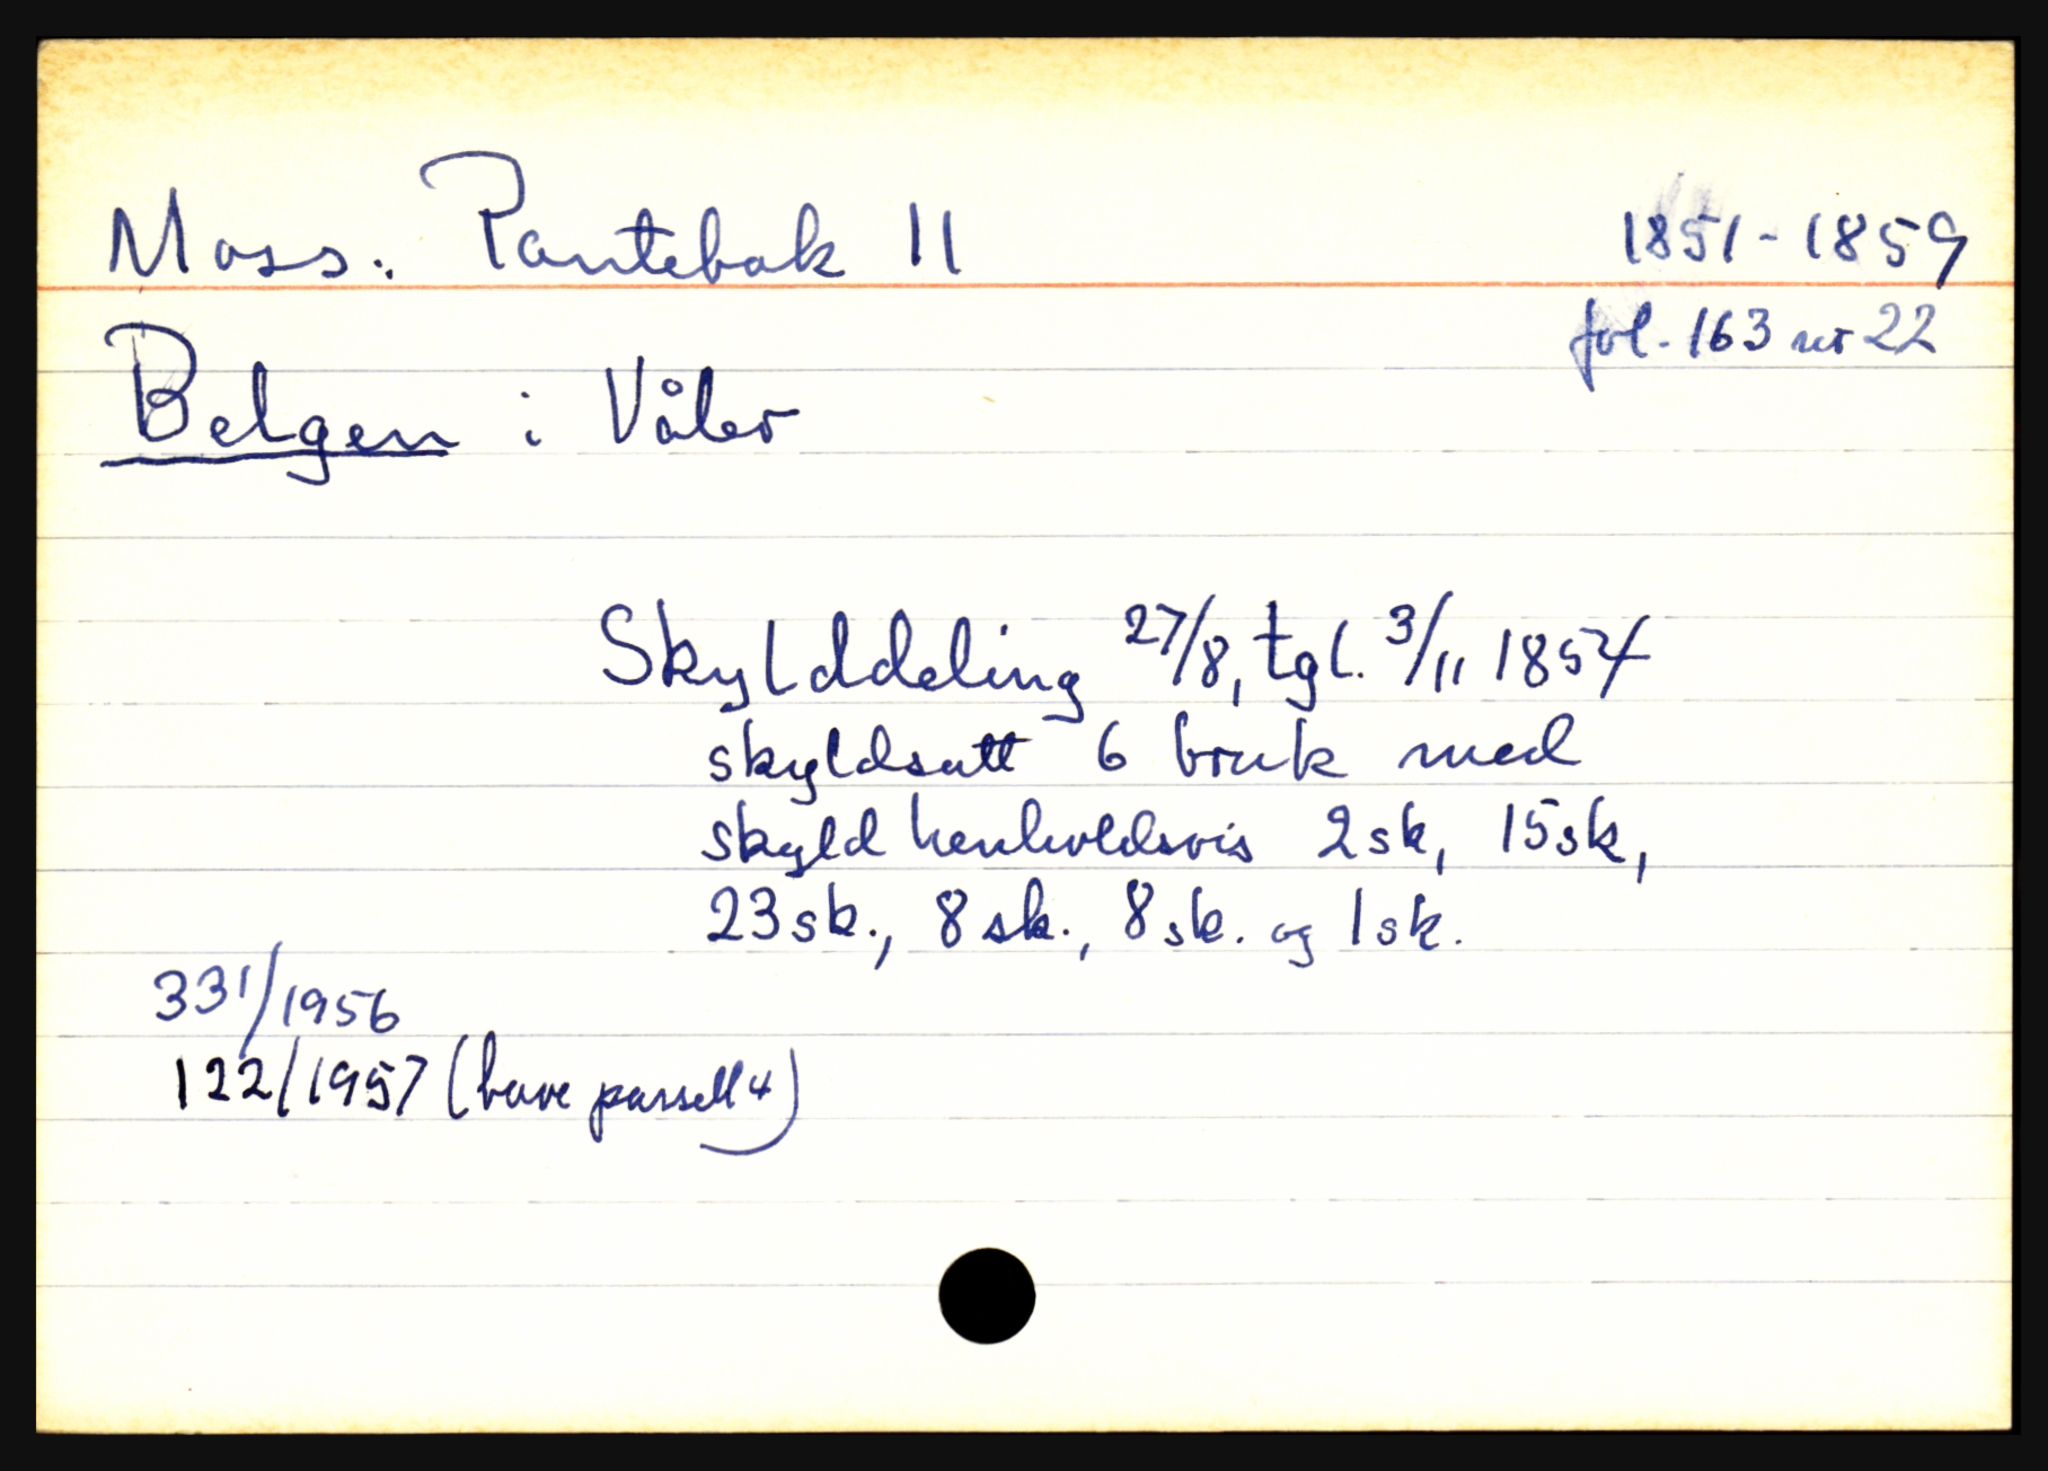 Moss. Pantebok 11 1851-1859
fol. 163 nr 22
Belgen i Våler
Skylddeling 27/8, tgl. 3/11 1854
skyldsatt 6 bruk med
skyld henholdsvis 2sk, 15sk,
23sk., 8sk., 8sk. og 1sk.
331/1956
122/1957 (bare parsell 4)